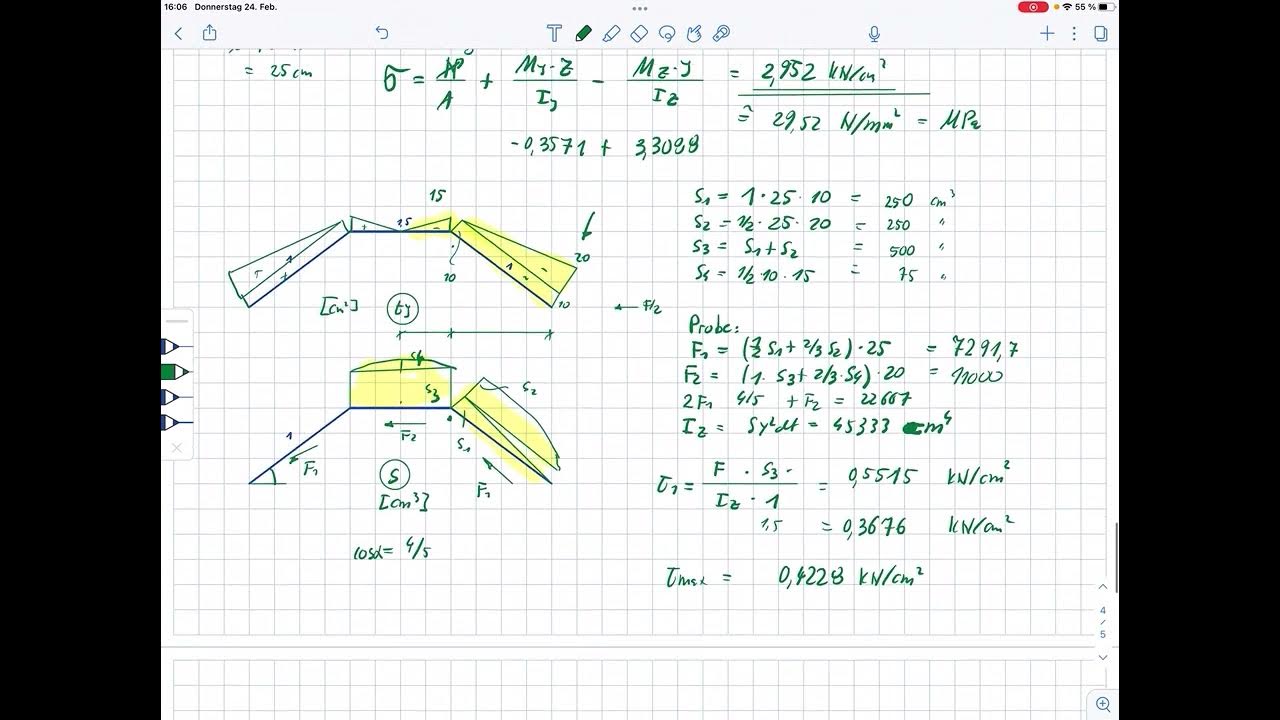 16:06 Donnerstag 24. Feb. 55 %
= 25 cm
σ = N/A + My·z/Iy − Mz·y/Iz = 2,952 kN/cm²
≙ 29,52 N/mm² = MPa
-0,3571 + 3,3088
15
1,5
S1 = 1·25·10 = 250 cm³
S2 = 1/2·25·20 = 250 "
S3 = S1+S2 = 500 "
S4 = 1/2·10·15 = 75 "
+ −
1 1
20
10 10
[cm²] ty F/2
Probe:
F1 = (1/2 S1 + 2/3 S2)·25 = 7291,7
F2 = (1·S3 + 2/3·S4)·20 = 11000
2F1 4/5 + F2 = 22667
Iz = ∫y²dA = 45333 cm⁴
S4
S3 S2
F2
1 S1
F1 F1
S
[cm³]
τ1 = F·S3·/Iz·1 = 0,5515 kN/cm²
1,5 = 0,3676 kN/cm²
cosα = 4/5
τmax = 0,4228 kN/cm²
4
5